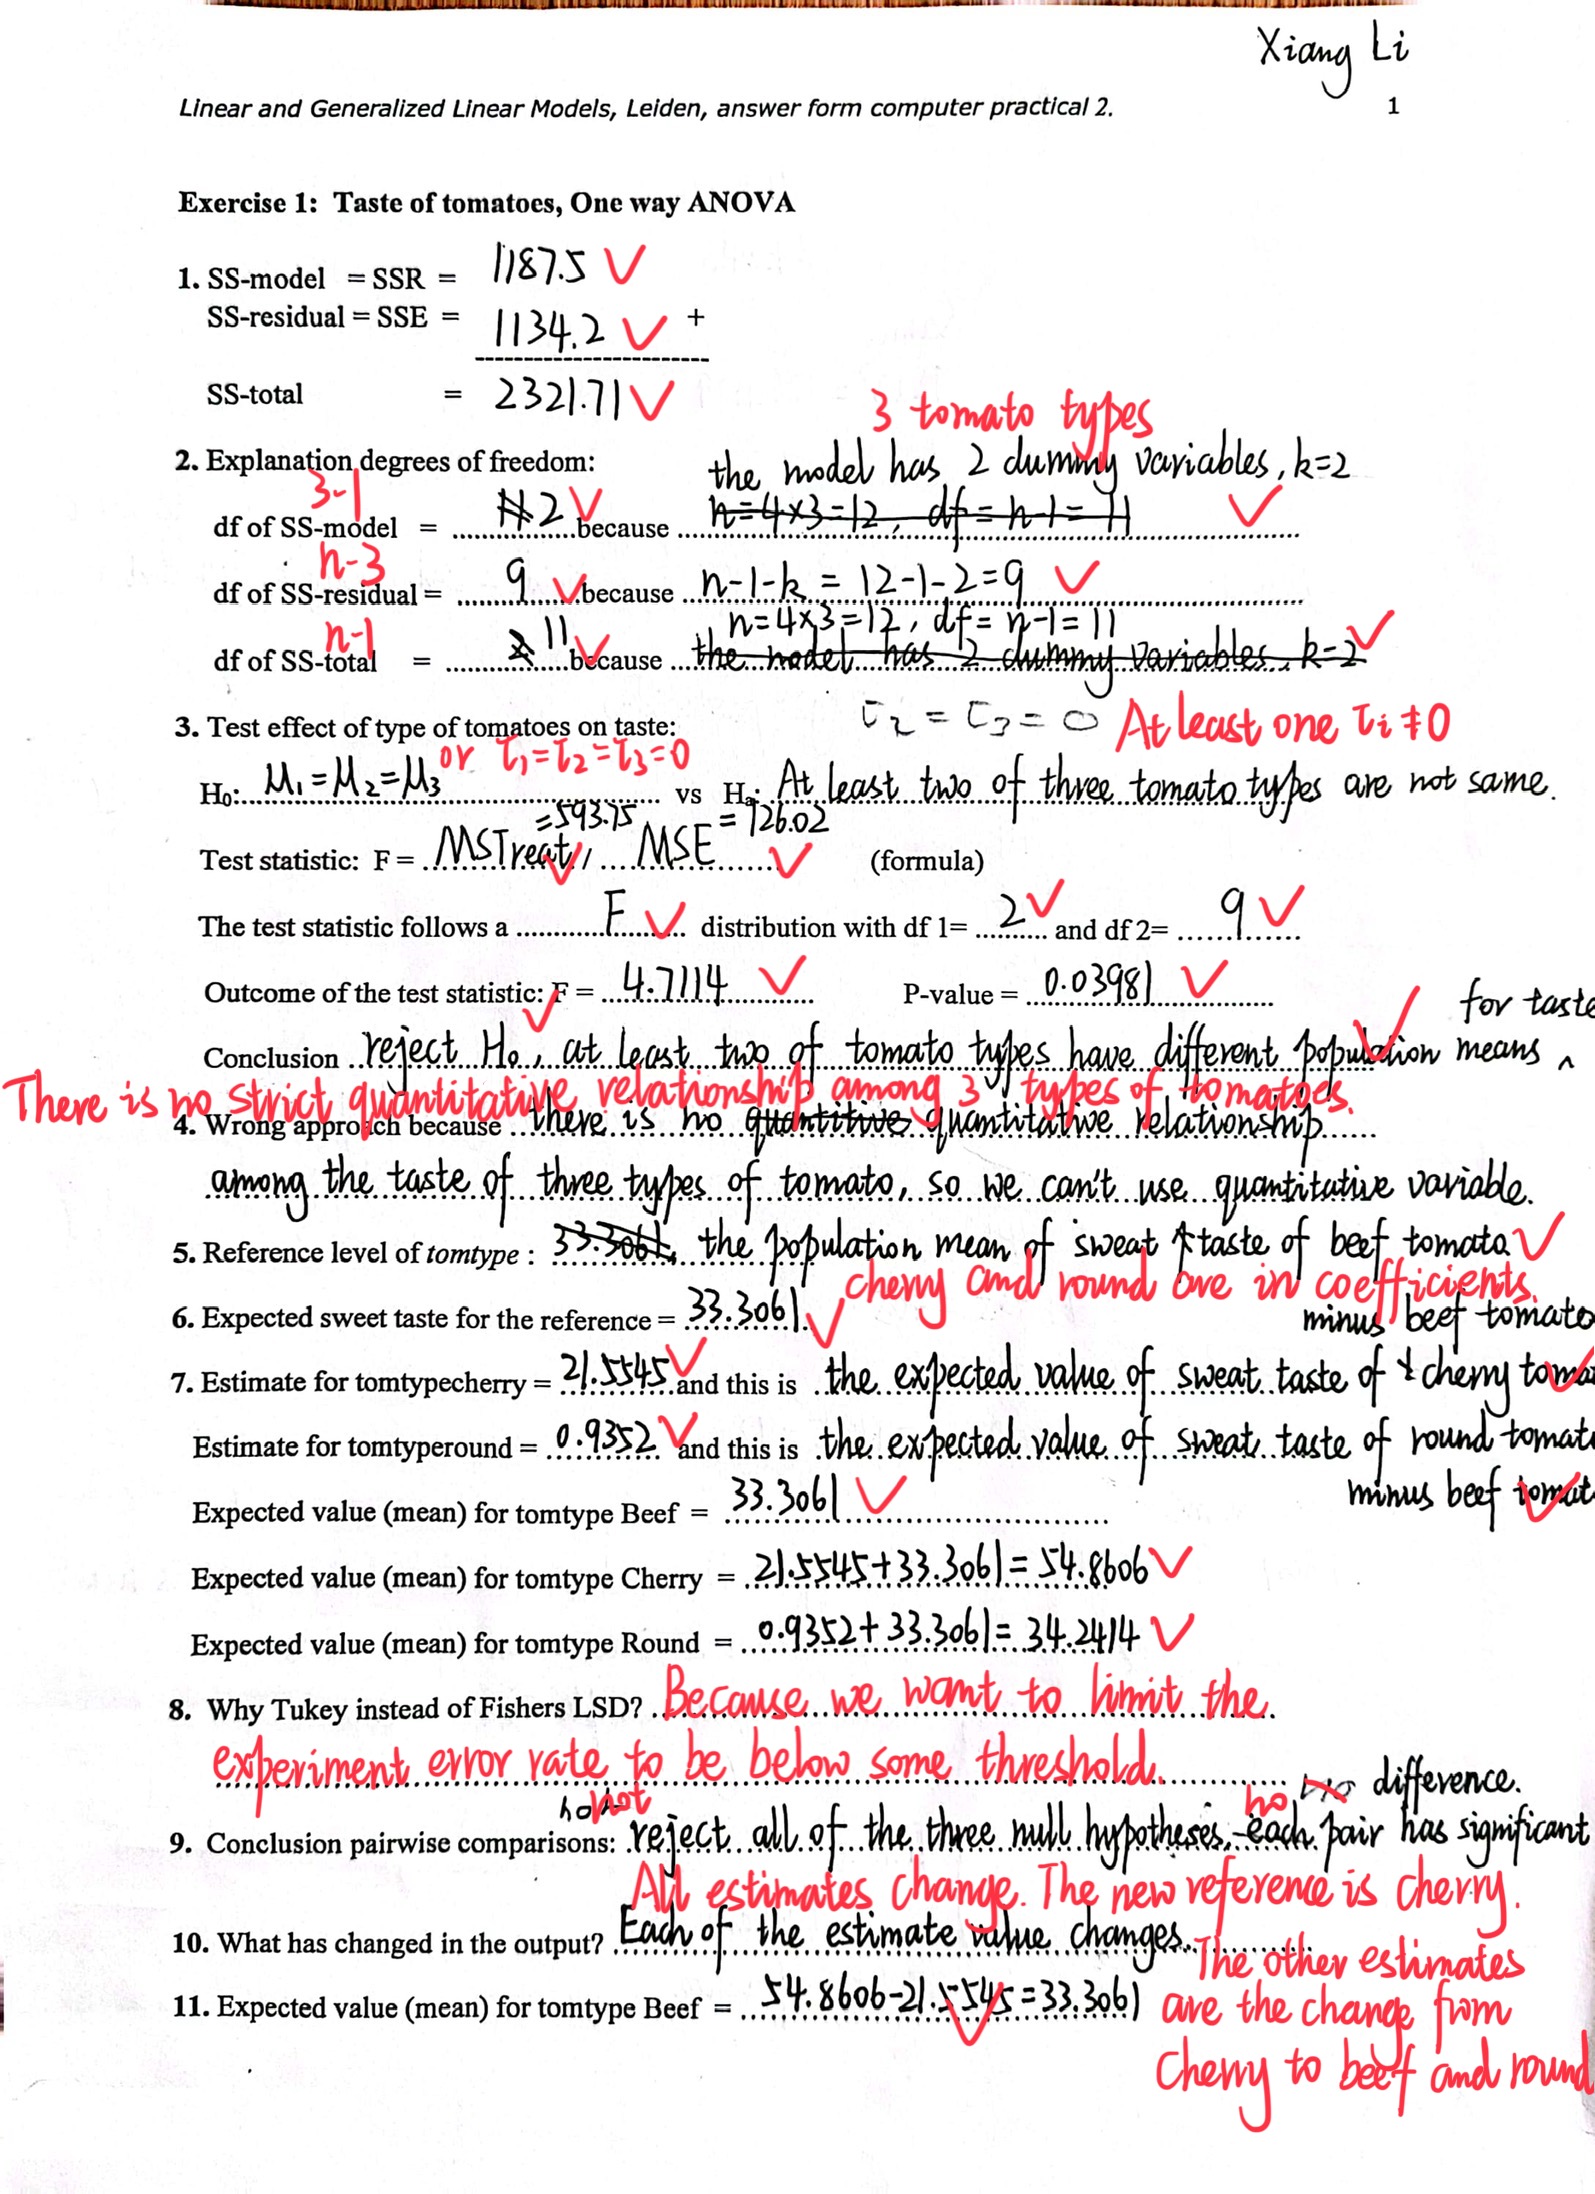 Xiang Li
Linear and Generalized Linear Models, Leiden, answer form computer practical 2. 1
Exercise 1: Taste of tomatoes, One way ANOVA
1. SS-model = SSR = 1187.5 V
SS-residual = SSE = 1134.2 V +
SS-total = 2321.71 V
3 tomato types
2. Explanation degrees of freedom: the model has 2 dummy variables, k=2
3-1
df of SS-model = 2 V because n=4×3=12, df=n-1=11 V
n-3
df of SS-residual = 9 V because n-1-k = 12-1-2=9 V
n-1 n=4×3=12, df=n-1=11
df of SS-total = 2 11 V because the model has 2 dummy variables, k=2 V
τ2 = τ3 = 0 At least one τi ≠ 0
3. Test effect of type of tomatoes on taste:
or τ1=τ2=τ3=0
H0: μ1=μ2=μ3 vs Ha: At least two of three tomato types are not same.
=593.75 =126.02
Test statistic: F = MSTreat V / MSE V (formula)
The test statistic follows a F V distribution with df 1= 2 V and df 2= 9 V
Outcome of the test statistic: F = 4.7114 V P-value = 0.03981 V
for taste
Conclusion reject H0, at least two of tomato types have different population means ^
There is no strict quantitative relationship among 3 types of tomatoes.
4. Wrong approach because there is no quantitive quantitative relationship
among the taste of three types of tomato, so we can't use quantitative variable.
5. Reference level of tomtype : 33.3061, the population mean of sweat taste of beef tomato. V
cherry and round are in coefficients.
6. Expected sweet taste for the reference = 33.3061. V
minus beef tomato
7. Estimate for tomtypecherry = 21.5545 V and this is the expected value of sweat taste of cherry tomat
Estimate for tomtyperound = 0.9352 V and this is the expected value of sweat taste of round tomat
minus beef tomat
Expected value (mean) for tomtype Beef = 33.3061 V
Expected value (mean) for tomtype Cherry = 21.5545+33.3061=54.8606 V
Expected value (mean) for tomtype Round = 0.9352+33.3061=34.2414 V
8. Why Tukey instead of Fishers LSD? Because we want to limit the
experiment error rate to be below some threshold.
difference.
not no
9. Conclusion pairwise comparisons: reject all of the three null hypotheses, each pair has significant
All estimates change. The new reference is cherry.
10. What has changed in the output? Each of the estimate value changes.
The other estimates
11. Expected value (mean) for tomtype Beef = 54.8606-21.5545=33.3061
are the change from
Cherry to beef and round